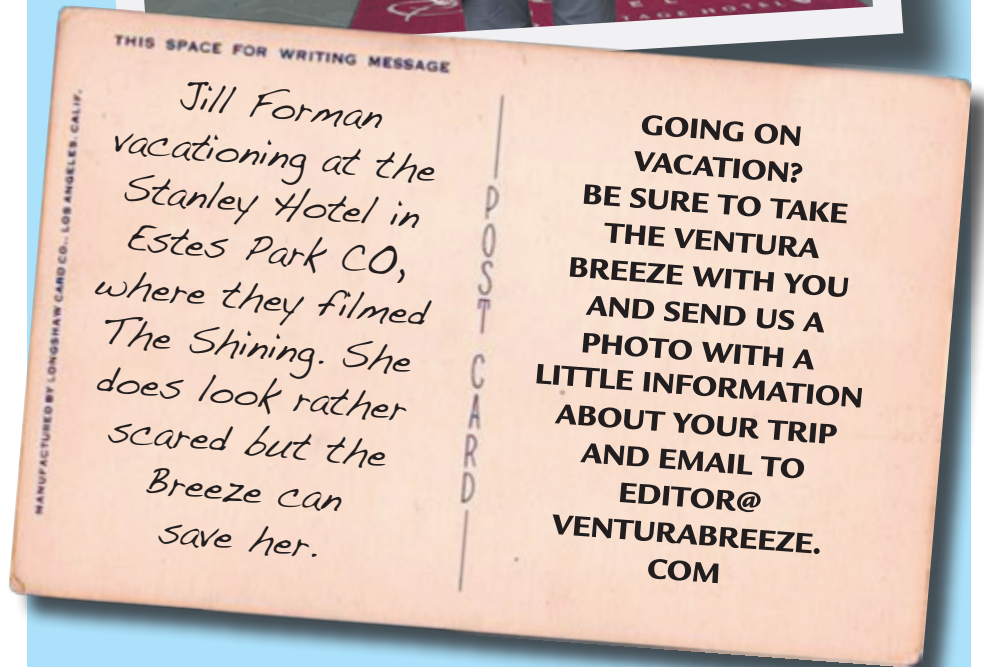 TAGE HOTEL
THIS SPACE FOR WRITING MESSAGE
MANUFACTURED BY LONGSHAW CARD CO., LOS ANGELES, CALIF.
Jill Forman
vacationing at the
Stanley Hotel in
Estes Park CO,
where they filmed
The Shining. She
does look rather
scared but the
Breeze can
save her.
POST CARD
GOING ON
VACATION?
BE SURE TO TAKE
THE VENTURA
BREEZE WITH YOU
AND SEND US A
PHOTO WITH A
LITTLE INFORMATION
ABOUT YOUR TRIP
AND EMAIL TO
EDITOR@
VENTURABREEZE.
COM